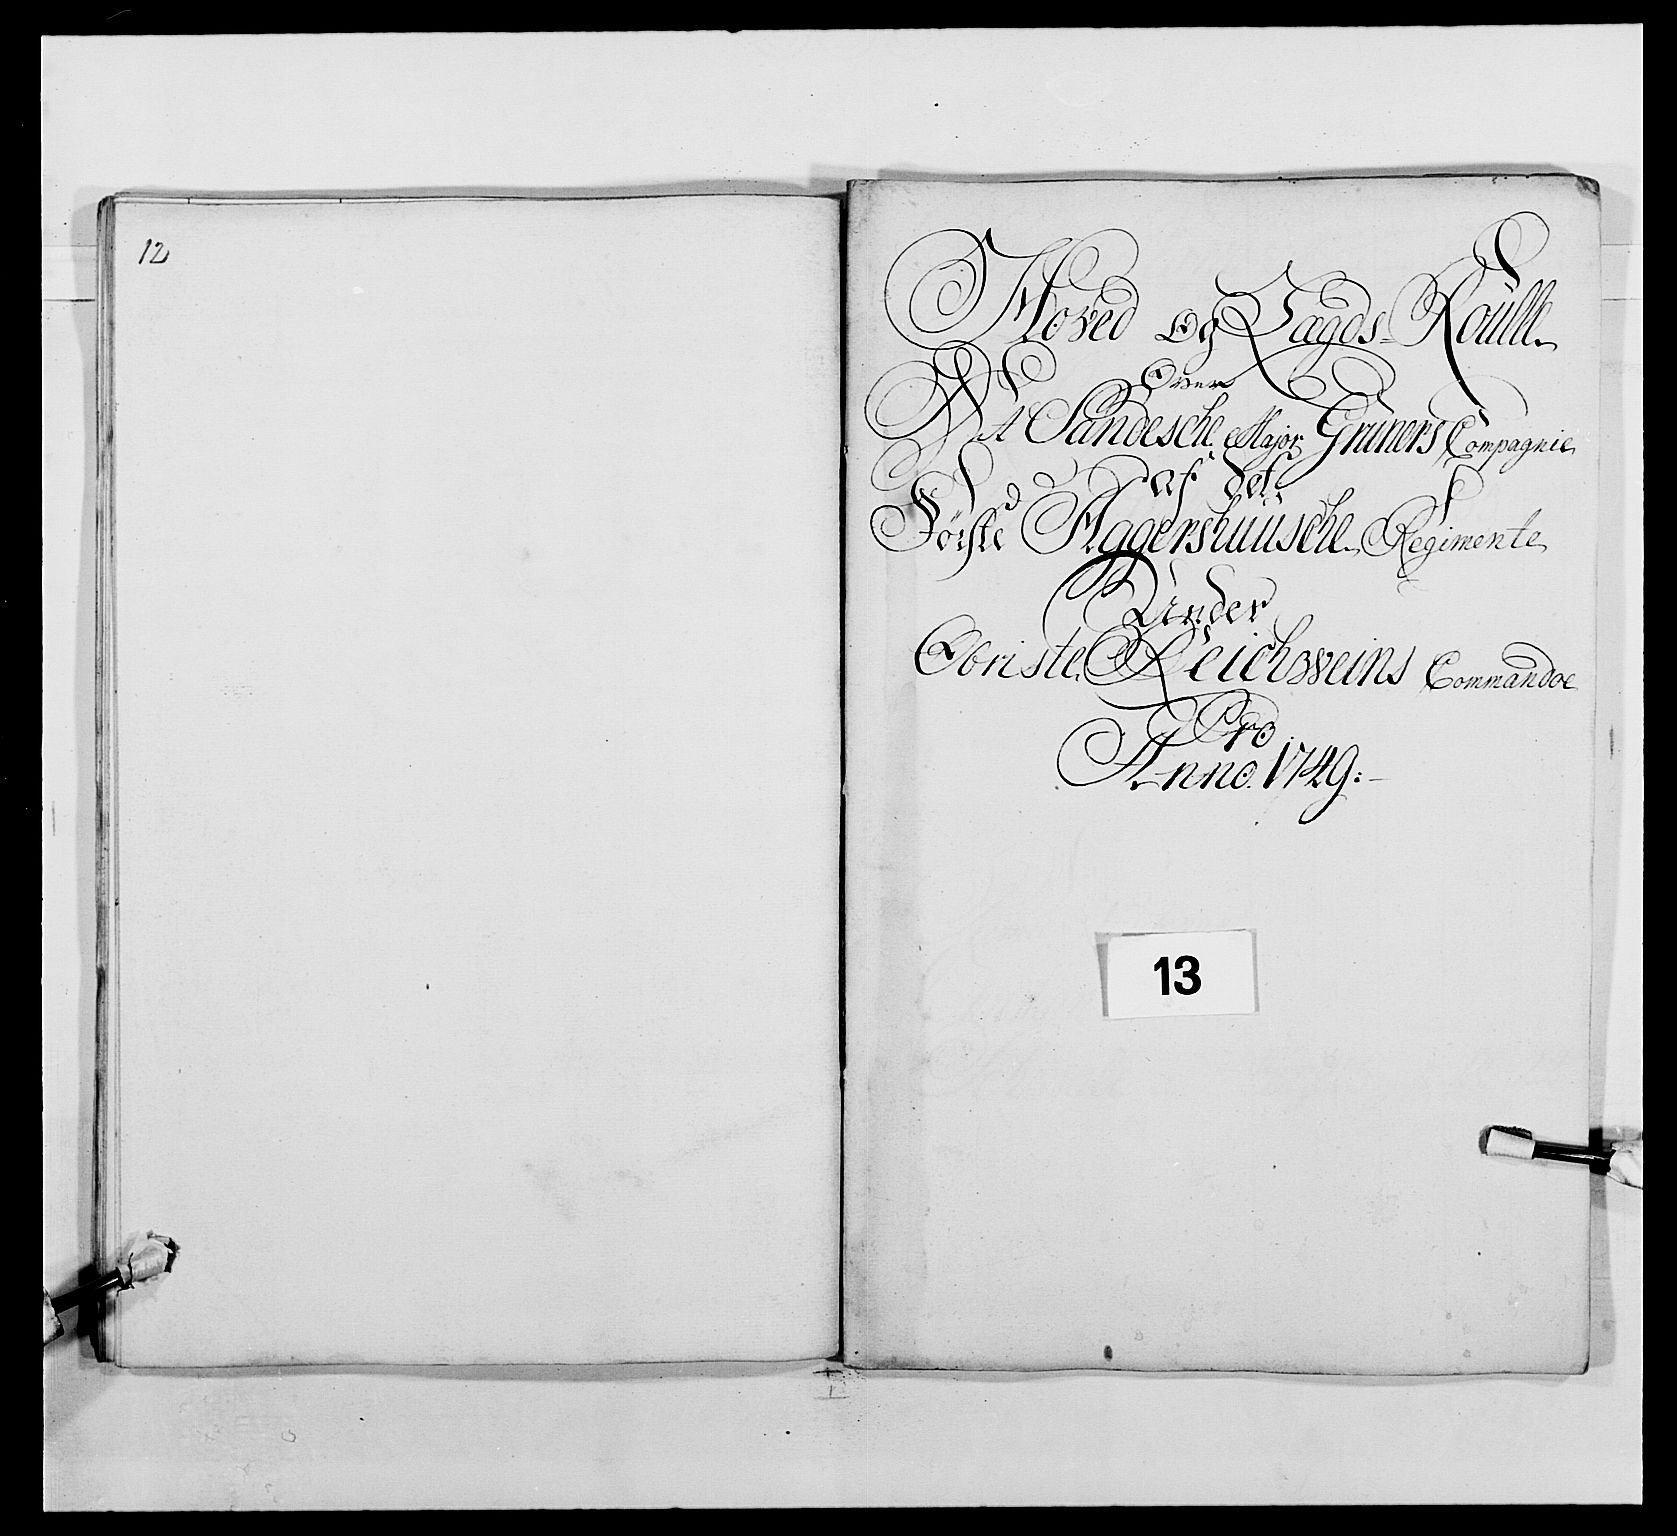 12
Hoved og Lægds-Roulle
Over
Sandesche Major Gruners Compagnie
af det
Förste Aggershuusche Regimente
Under
Obriste Reichweins Commandoe
Pro
Anno. 1749:
13